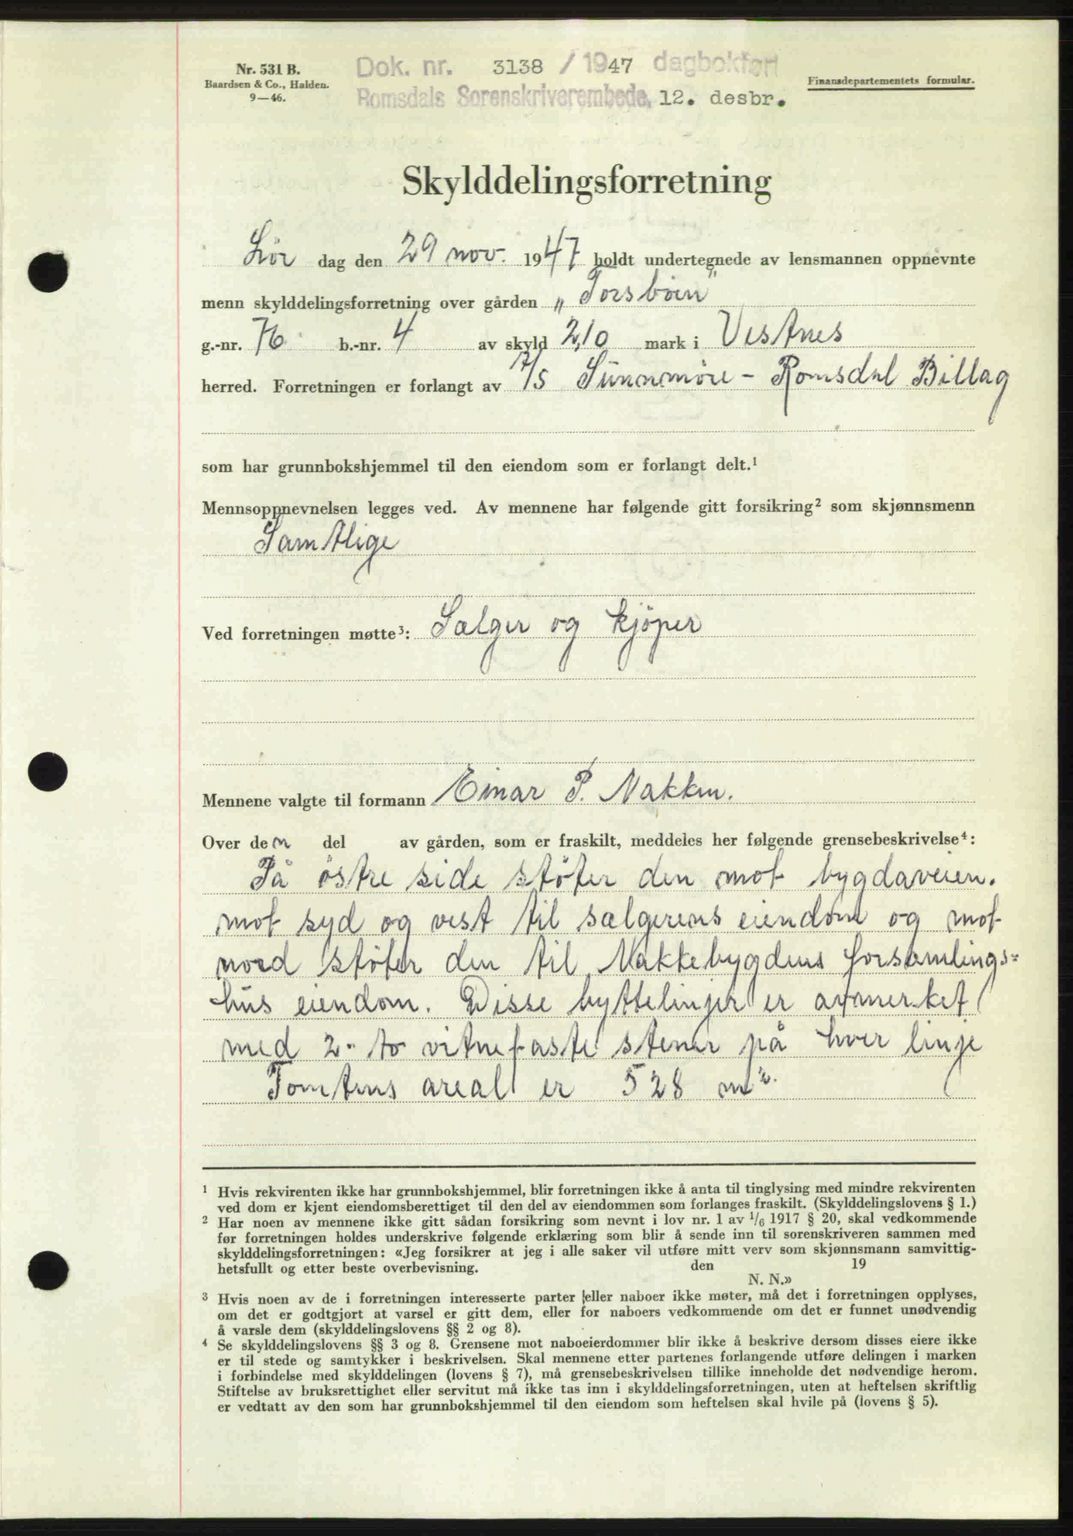 Nr. 531 B.
Baardsen & Co., Halden.
9—46.
Dok. nr. 3138 / 1947 dagbokført
Romsdals Sorenskriverembede, 12. desbr.
Finansdepartementets formular.
Skylddelingsforretning
Lør dag den 29 nov. 1947 holdt undertegnede av lensmannen oppnevnte
menn skylddelingsforretning over gården „Torsbøen"
g.-nr. 76 b.-nr. 4 av skyld 2,10 mark i Vestnes
herred. Forretningen er forlangt av A/S Sunnmøre - Romsdal Billag
som har grunnbokshjemmel til den eiendom som er forlangt delt.¹
Mennsoppnevnelsen legges ved. Av mennene har følgende gitt forsikring² som skjønnsmenn
Samtlige
Ved forretningen møtte³: Sælger og kjöper
Mennene valgte til formann Einar P. Nakken.
Over den del av gården, som er fraskilt, meddeles her følgende grensebeskrivelse⁴:
På östre side stöter den mot bygdaveien.
mot syd og vest til sælgerens eiendom og mot
nord stöter den til Nakkebygdens forsamlings=
hus eiendom. Disse byttelinjer er avmerket
med 2- to vitnefaste stener på hver linje
Tomtens areal er 528 m².
¹ Hvis rekvirenten ikke har grunnbokshjemmel, blir forretningen ikke å anta til tinglysing med mindre rekvirenten
ved dom er kjent eiendomsberettiget til den del av eiendommen som forlanges fraskilt. (Skylddelingslovens § 1.)
² Har noen av mennene ikke gitt sådan forsikring som nevnt i lov nr. 1 av 1/6 1917 § 20, skal vedkommende
før forretningen holdes underskrive følgende erklæring som blir å sende inn til sorenskriveren sammen med
skylddelingsforretningen: «Jeg forsikrer at jeg i alle saker vil utføre mitt verv som skjønnsmann samvittig-
hetsfullt og etter beste overbevisning. den 19
N. N.»
³ Hvis noen av de i forretningen interesserte parter eller naboer ikke møter, må det i forretningen opplyses,
om det er godtgjort at varsel er gitt dem, eller for naboers vedkommende om det er funnet unødvendig
å varsle dem (skylddelingslovens §§ 2 og 8).
⁴ Se skylddelingslovens §§ 3 og 8. Grensene mot naboeierdommer blir ikke å beskrive dersom disses eiere ikke
er til stede og samtykker i beskrivelsen. Skal mennene etter partenes forlangende utføre delingen i marken
i forbindelse med skylddelingen (lovens § 7), må grensebeskrivelsen tillike inneholde det nødvendige herom.
Stiftelse av bruksrettighet eller servitut må ikke tas inn i skylddelingsforretningen, uten at heftelsen skriftlig
er vedtatt av den som har grunnbokshjemmel til den eiendom som heftelsen skal hvile på (lovens § 5).